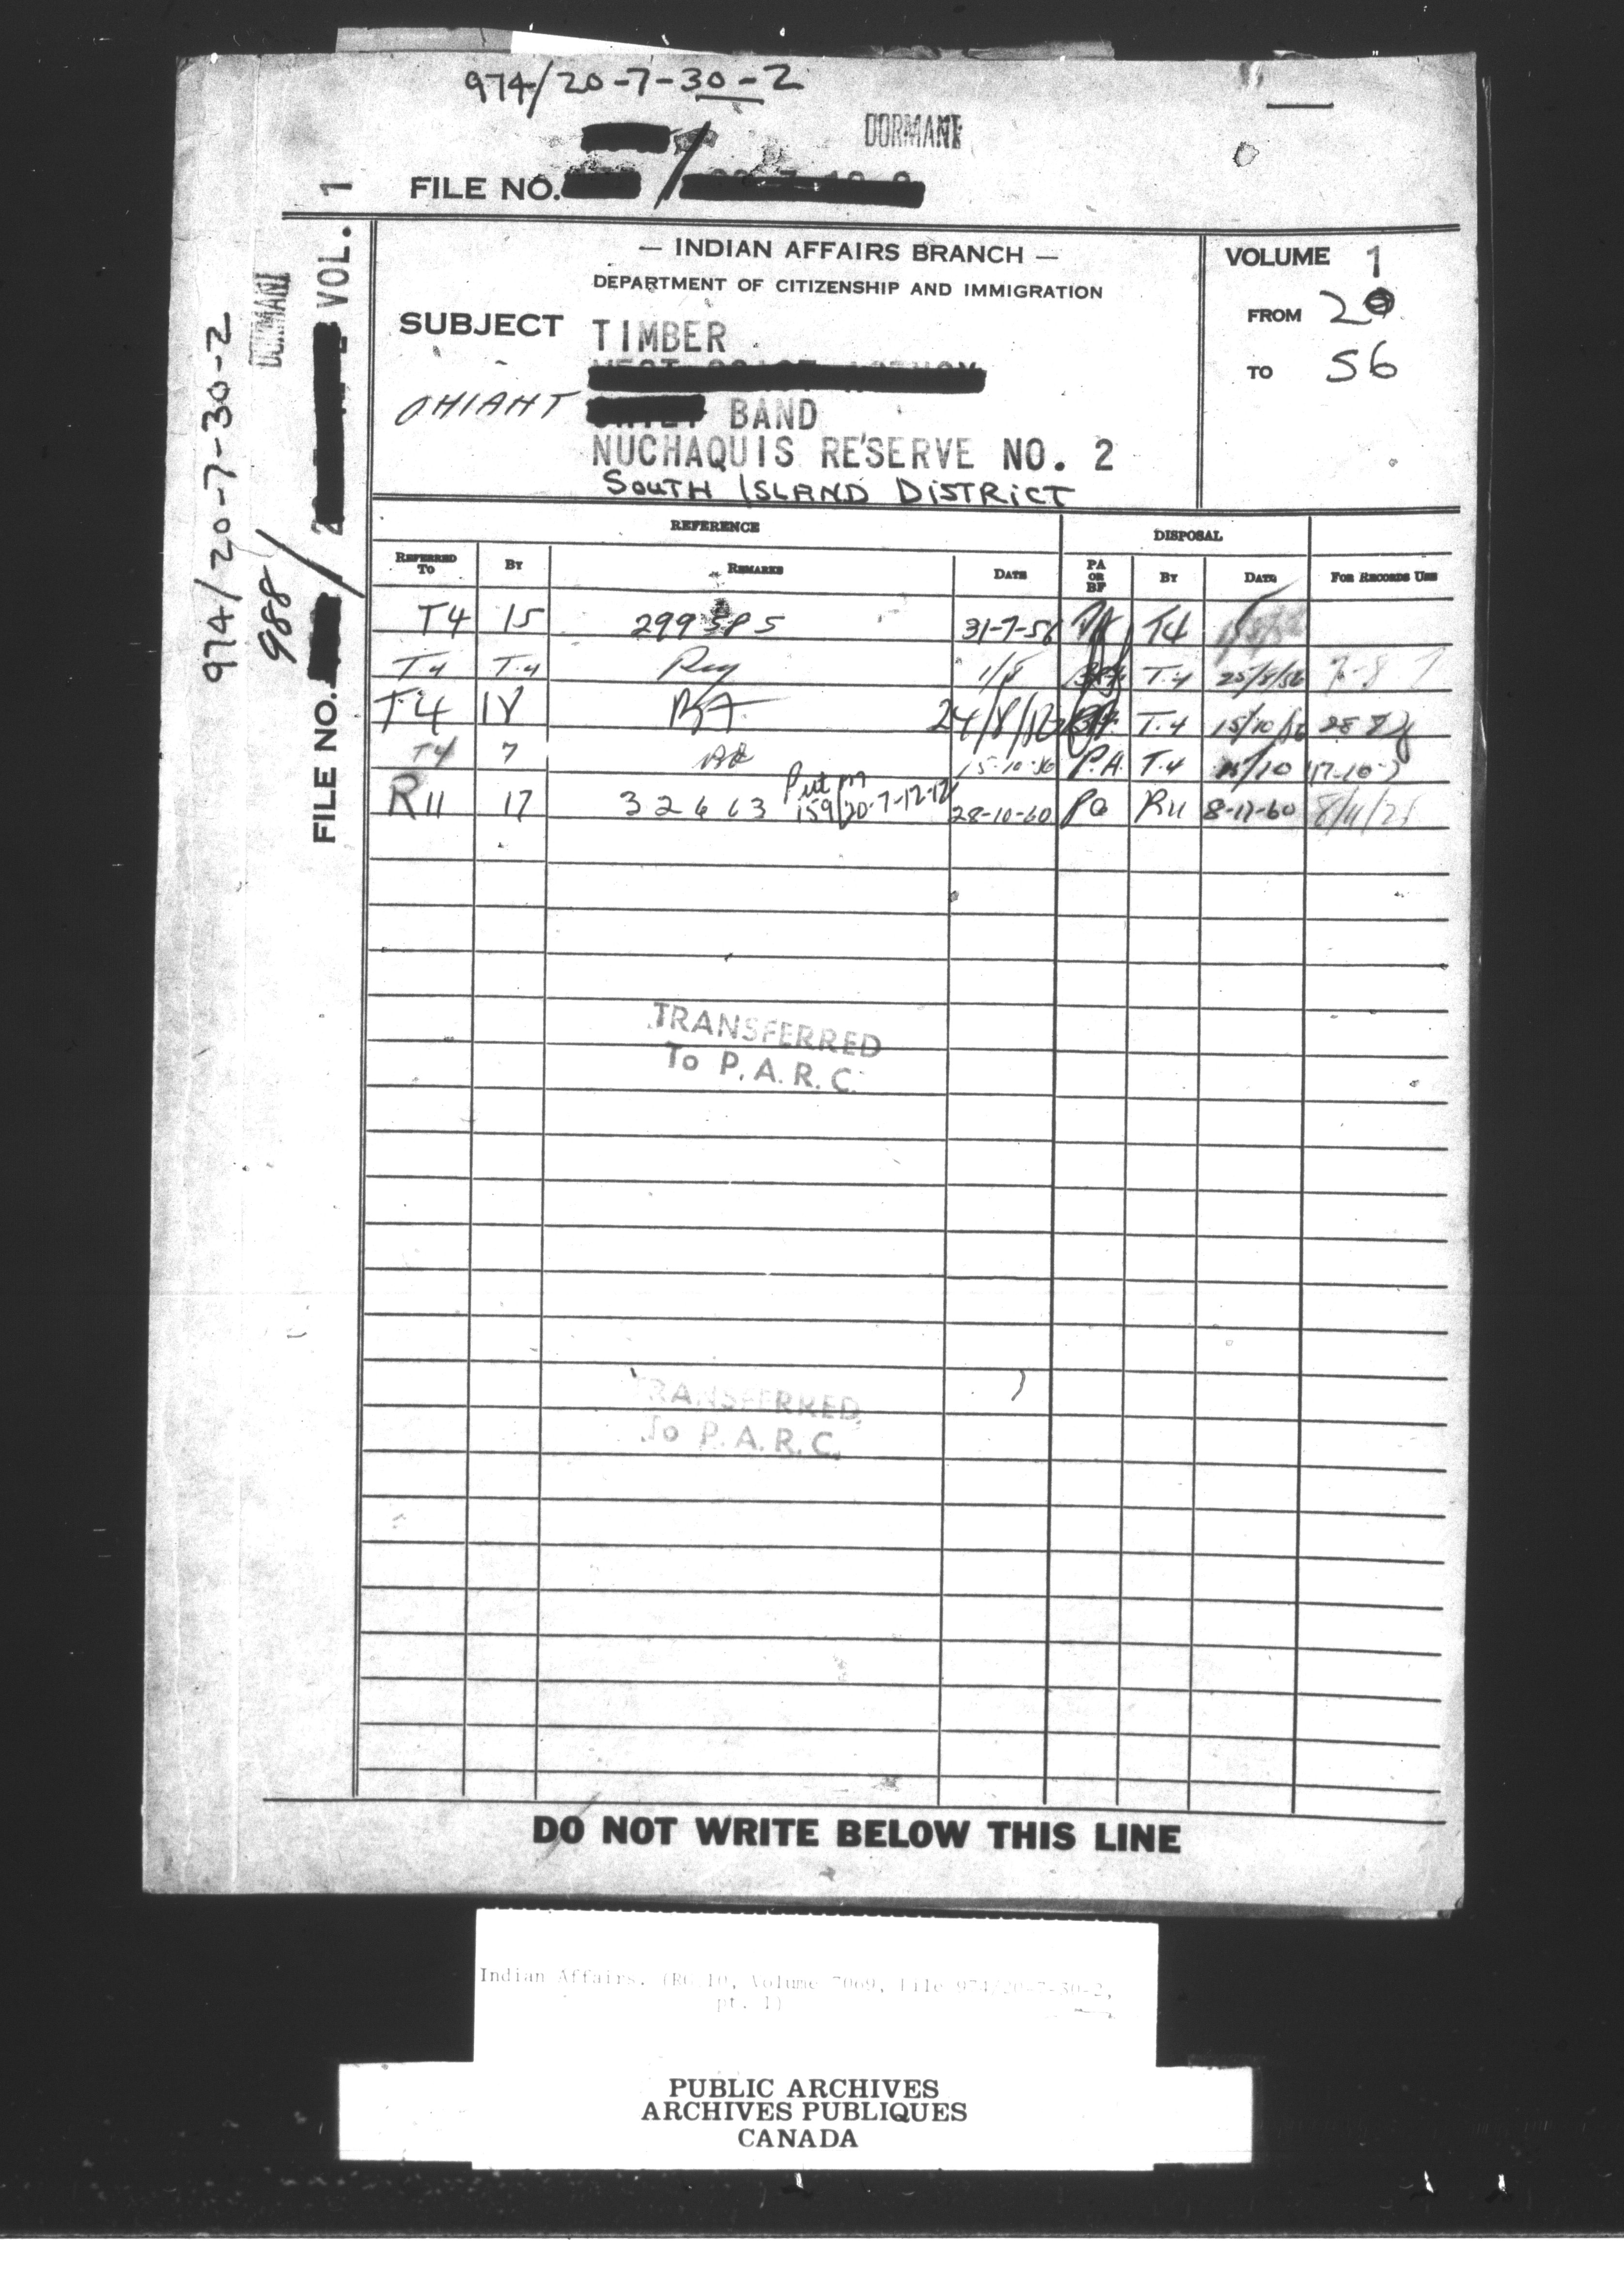 974/20-7-30-2
DORMANT
FILE NO. /
— INDIAN AFFAIRS BRANCH —
DEPARTMENT OF CITIZENSHIP AND IMMIGRATION
SUBJECT TIMBER
OHIAHT BAND
NUCHAQUIS RESERVE NO. 2
SOUTH ISLAND DISTRICT
VOLUME 1
FROM 20
TO 56
974/20-7-30-2
DORMANT
988/
FILE NO. / VOL. 1
REFERENCE DISPOSAL
REFERRED TO BY REMARKS DATE PA OR BF BY DATE FOR RECORDS USE
T4 15 31-7-56 T4
T.4 T.4 1/8 T.4 25/8/56
T4 18 T.4 15/10/56
T4 7 15-10-56 P.A. T.4 15/10
R11 17 32663 Put on 159/20-7-12-12 28-10-60 PA R11 8-11-60
TRANSFERRED
TO P.A.R.C.
TRANSFERRED
TO P.A.R.C.
DO NOT WRITE BELOW THIS LINE
Indian Affairs. (RG 10, Volume 7069, File 974/20-7-30-2,
pt. 1)
PUBLIC ARCHIVES
ARCHIVES PUBLIQUES
CANADA